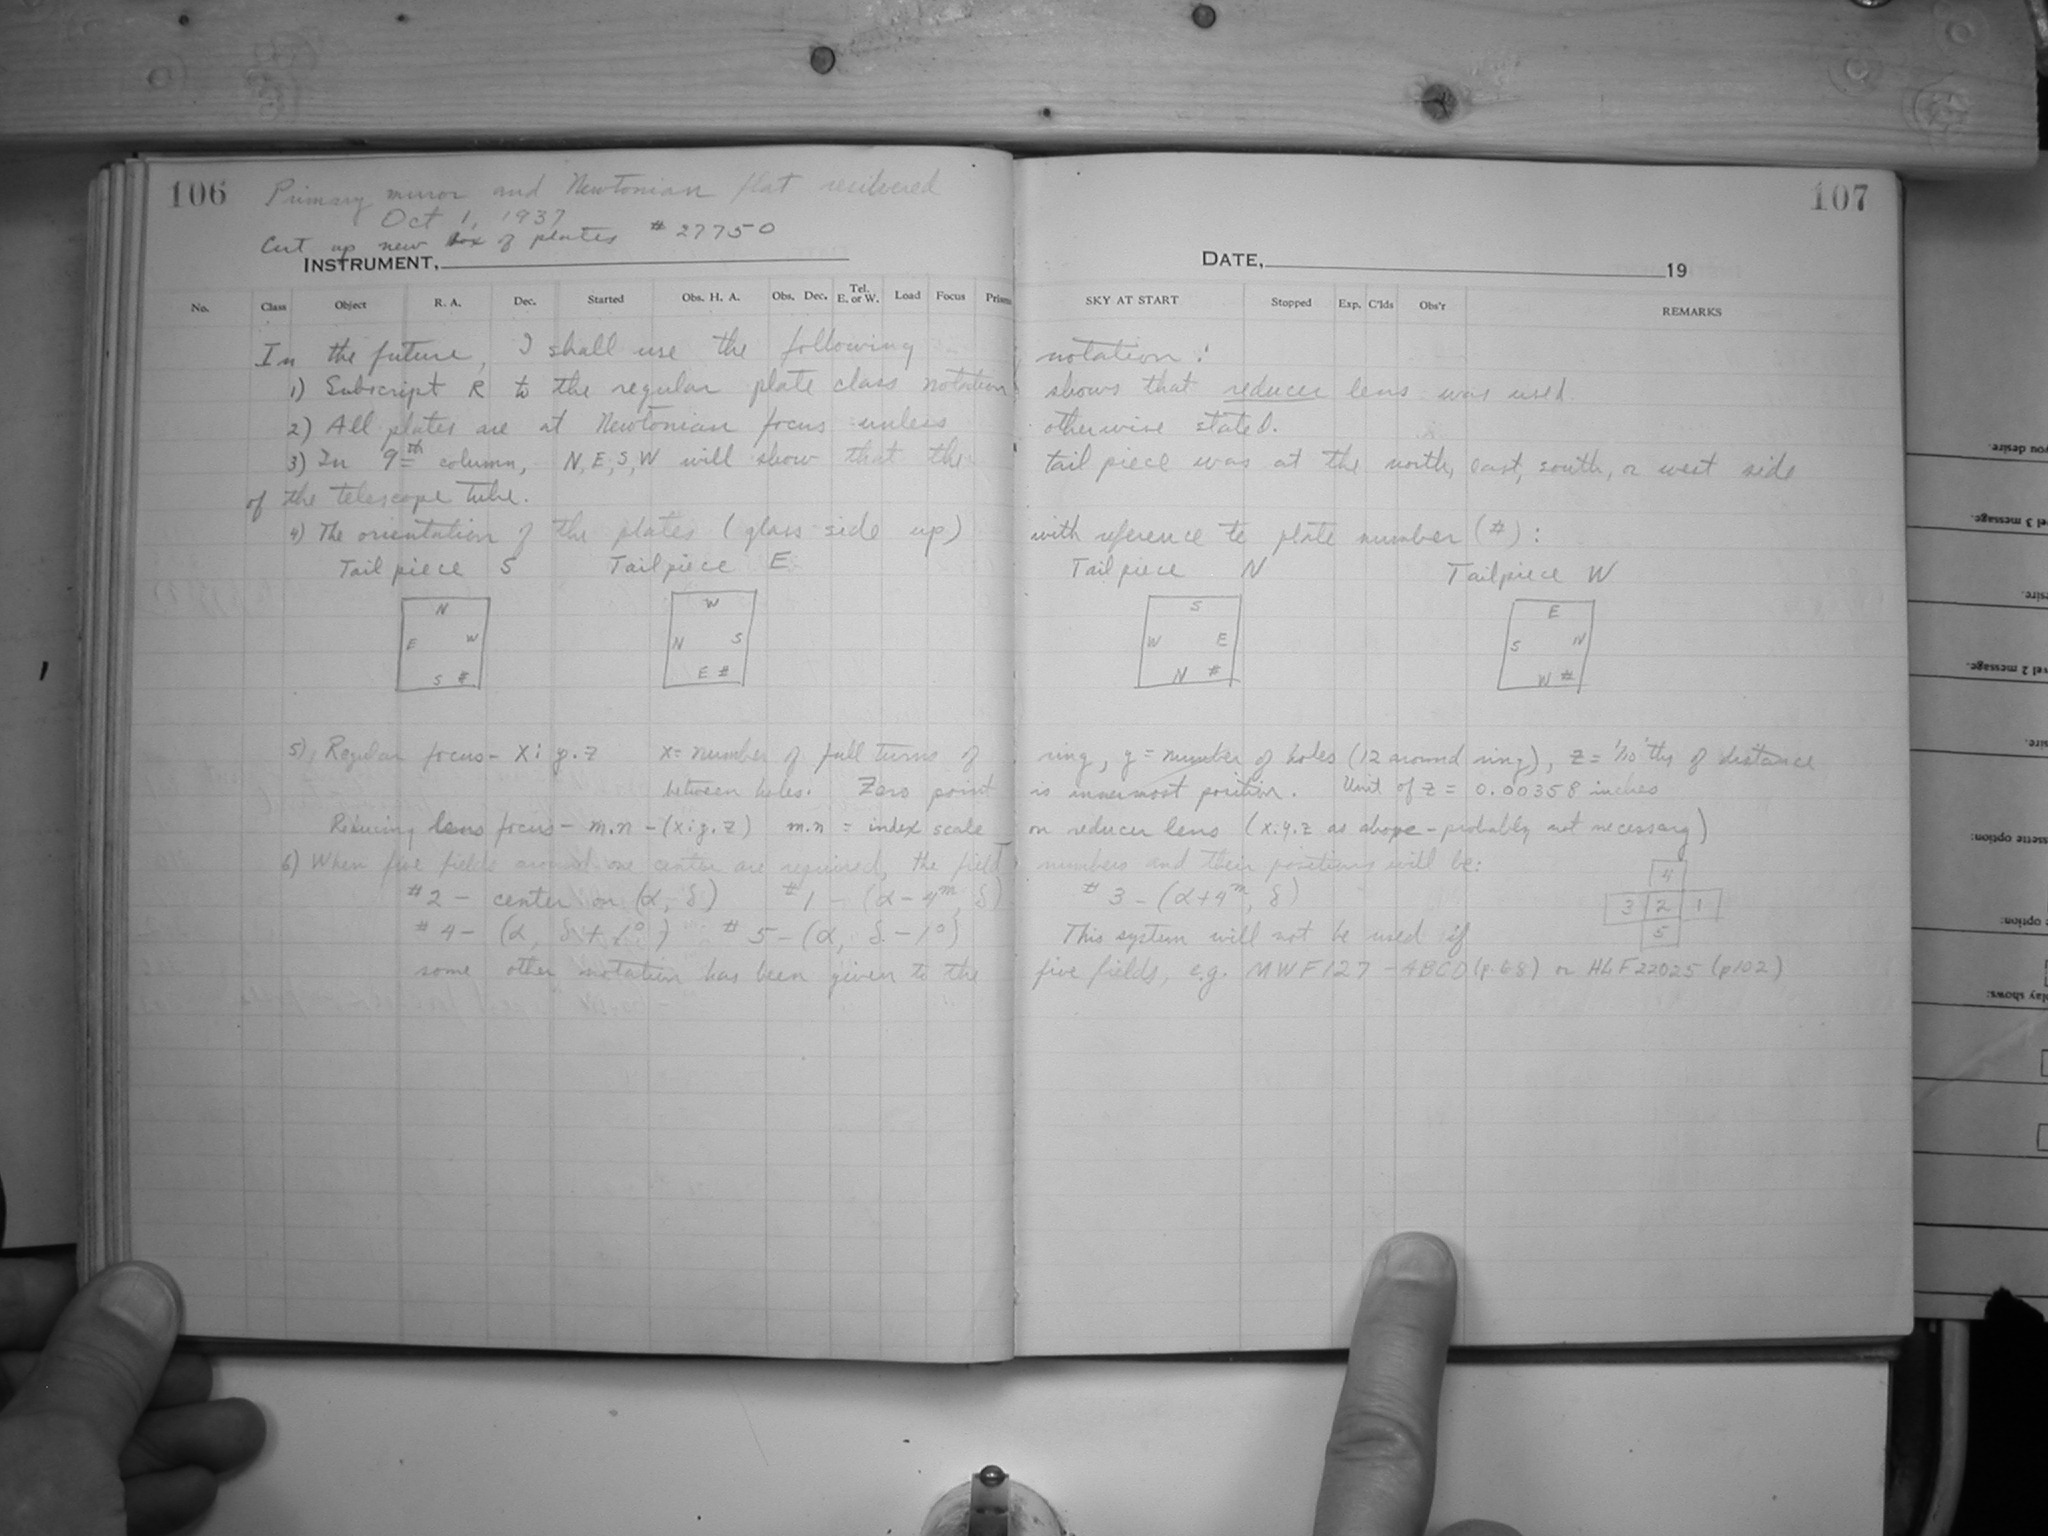 106
Primary mirror and Newtonian flat resilvered
Oct 1, 1937
Cut up new box of plates # 27750
INSTRUMENT,
No. Class Object R. A. Dec. Started Obs. H. A. Obs. Dec. Tel. E. or W. Load Focus Prism
107
DATE, 19
SKY AT START Stopped Exp. C'lds Obs'r REMARKS
In the future, I shall use the following notation:
1) Subscript R to the regular plate class notation shows that reducer lens was used
2) All plates are at Newtonian focus unless otherwise stated.
3) In 9th column, N, E, S, W will show that the tail piece was at the north, east, south, or west side
of the telescope tube.
4) The orientation of the plates (glass side up) with reference to plate number (#):
Tail piece S Tail piece E Tail piece N Tail piece W
N W S E
E W N S W E S N
S # E # N # W #
5) Regular focus - x:y.z x = number of full turns of ring, y = number of holes (12 around ring), z = 1/10'ths of distance
between holes. Zero point is innermost position. Unit of z = 0.00358 inches
Reducing lens focus - m.n - (x:y.z) m.n = index scale on reducer lens (x.y.z as above - probably not necessary)
6) When five fields around one center are required, the field numbers and their positions will be:
#2 - center on (α, δ) #1 - (α-4m, δ) #3 - (α+4m, δ)
#4 - (α, δ+1°) #5 - (α, δ-1°) This system will not be used if
4
3 2 1
5
some other notation has been given to the five fields, e.g. MWF127 - ABCD (p.68) or HLF22025 (p102)
you desire.
el 3 message.
sire.
vel 2 message.
sire.
ssette option:
e option:
play shows: